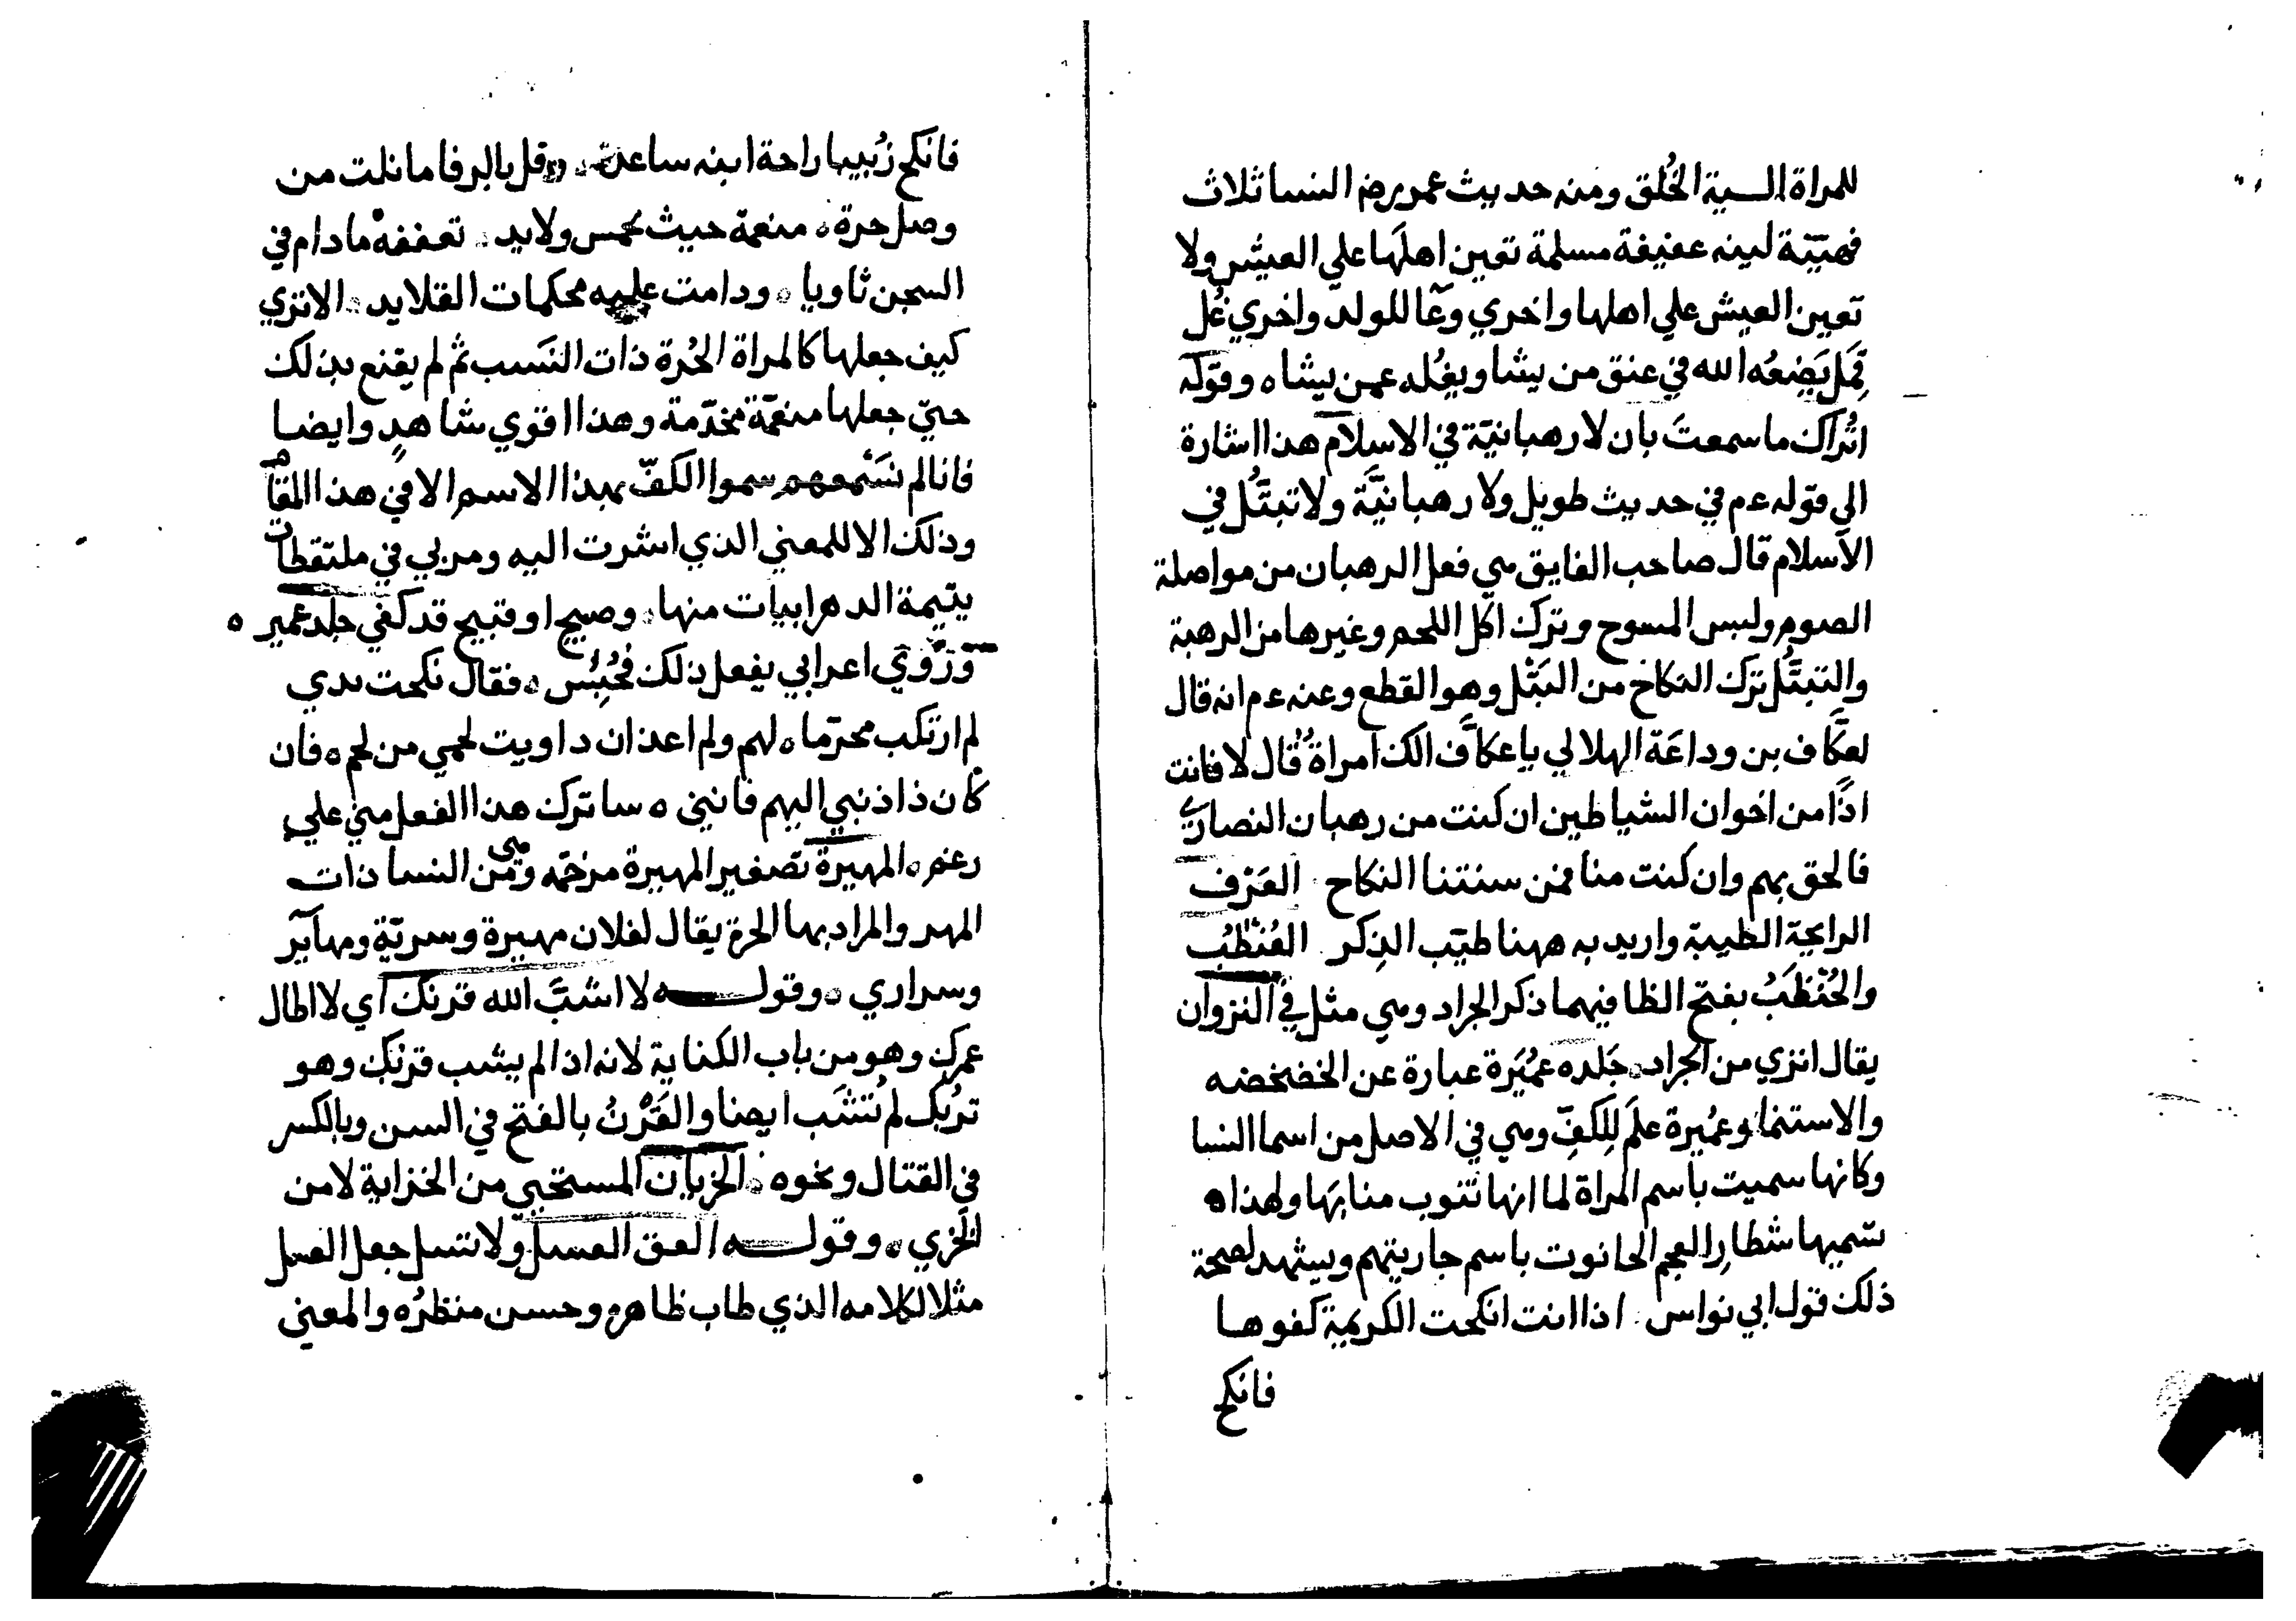 للمراة السية الخُلق ومنه حديث عمر رض النسا ثلاث
فهيّنة لينه عفيفة مسلمة تعين اهلَها علي العيش ولا
تعين العيش علي اهلها واخري وعآ للولد واخري غُل
قَمِل يَضعُه الله في عنق من يشا ويفُله عمن يشاه وقوله
اتُراك ما سمعتَ بان لا رهبانيّة في الاسلام هذا اشارة
الي قوله عم في حديث طويل ولا رهبانيَّة ولا تبتُّل في
الاسلام قال صاحب الفايق هي فعل الرهبان من مواصلة
الصوم ولبس المسوح وترك اكل اللحم وغيرها من الرهبة
والتبتُّل ترك النكاح من البَتْل وهو القطع وعنه عم انه قال
لعكَّاف بن وداعَة الهلالي يا عكاَّف الك امراةٌ قال لا فانت
اذًا من اخوان الشياطين ان كنت من رهبان النصاري
فالحق بهم وان كنت منا فمن سنتنا النكاح العَرْف
الرايحة الطيبة واريد به ههنا طيّب الذِكر العُنْظُب
والحُنْظَبُ بفتح الظا فيهما ذكر الجراد وهي مثل في النزوان
يقال انزي من الجراد ه جَلده عُمَيَرة عبارة عن الخضخضه
والاستنما وعُميرة علَم لِلكفِّ وهي في الاصل من اسما النسا
وكانها سميت باسم المراة لما انها تنوب منابَها ولهذا ه
سّميها شطارِ العجم الحانوت باسم جاريتهم ويشهد لصحة
ذلك قول ابي نواس اذا انت انكحت الكريمة كفوها
فانكح
فانكح زُبيبا راحة ابنه ساعد وقل بالرفا ما نلت من
وصل حرة ه منعمة حيث خمس ولايد تعففه ما دام في
السجن ثاويا ه ودامت عليه محكمات القلايد ه الا تري
كيف جعلها كالمراة الحُرة ذات النَسب ثم لم يقنع بذلك
حتي جعلها منعمّة مخدّمة وهذا اقوي شاهدٍ وايضا
فانا لم نسَمعهم سموا الكفّ بهذا الاسم الا في هذا المقام
وذلك الا للمعني الذي اشرت اليه ومر بي في ملتقطات
يتيمة الدهر ابيات منها ه وصبيح او قبيح قد كفي جلد عمير ه
ورُوي اعرابي يفعل ذلك فحُبِسُ ه فقال نكحت يدي
لم ارتكب محرّما ه لهم ولم اعد ان داويت لحمي من لحم ه فان
كان ذا ذنبي اليهم فانني ه ساترك هذا الفعل مني علي
رغم ه المهيرة تصغير المهيرة مرخمّه وهي من النسا ذات
المهر والمراد بها الحرة يقال لفلان مهيرة وسريّة ومهآير
وسراري ه وقولــه لا اشبَّ الله قرنك اي لا اطال
عمرك وهو من باب الكناية لانه اذا لم يشب قرنك وهو
تربُك لم تُشَب ايضا والقَرْنُ بالفتح في السن وبالكسر
في القتال ونحوه ه الخزيان المستحيي من الخزاية لا من
الخزي ه وقولــه العق العسل ولا تسل جعل العسل
مثلا لكلامه الذي طاب ظاهره وحسن منظرُه والمعني